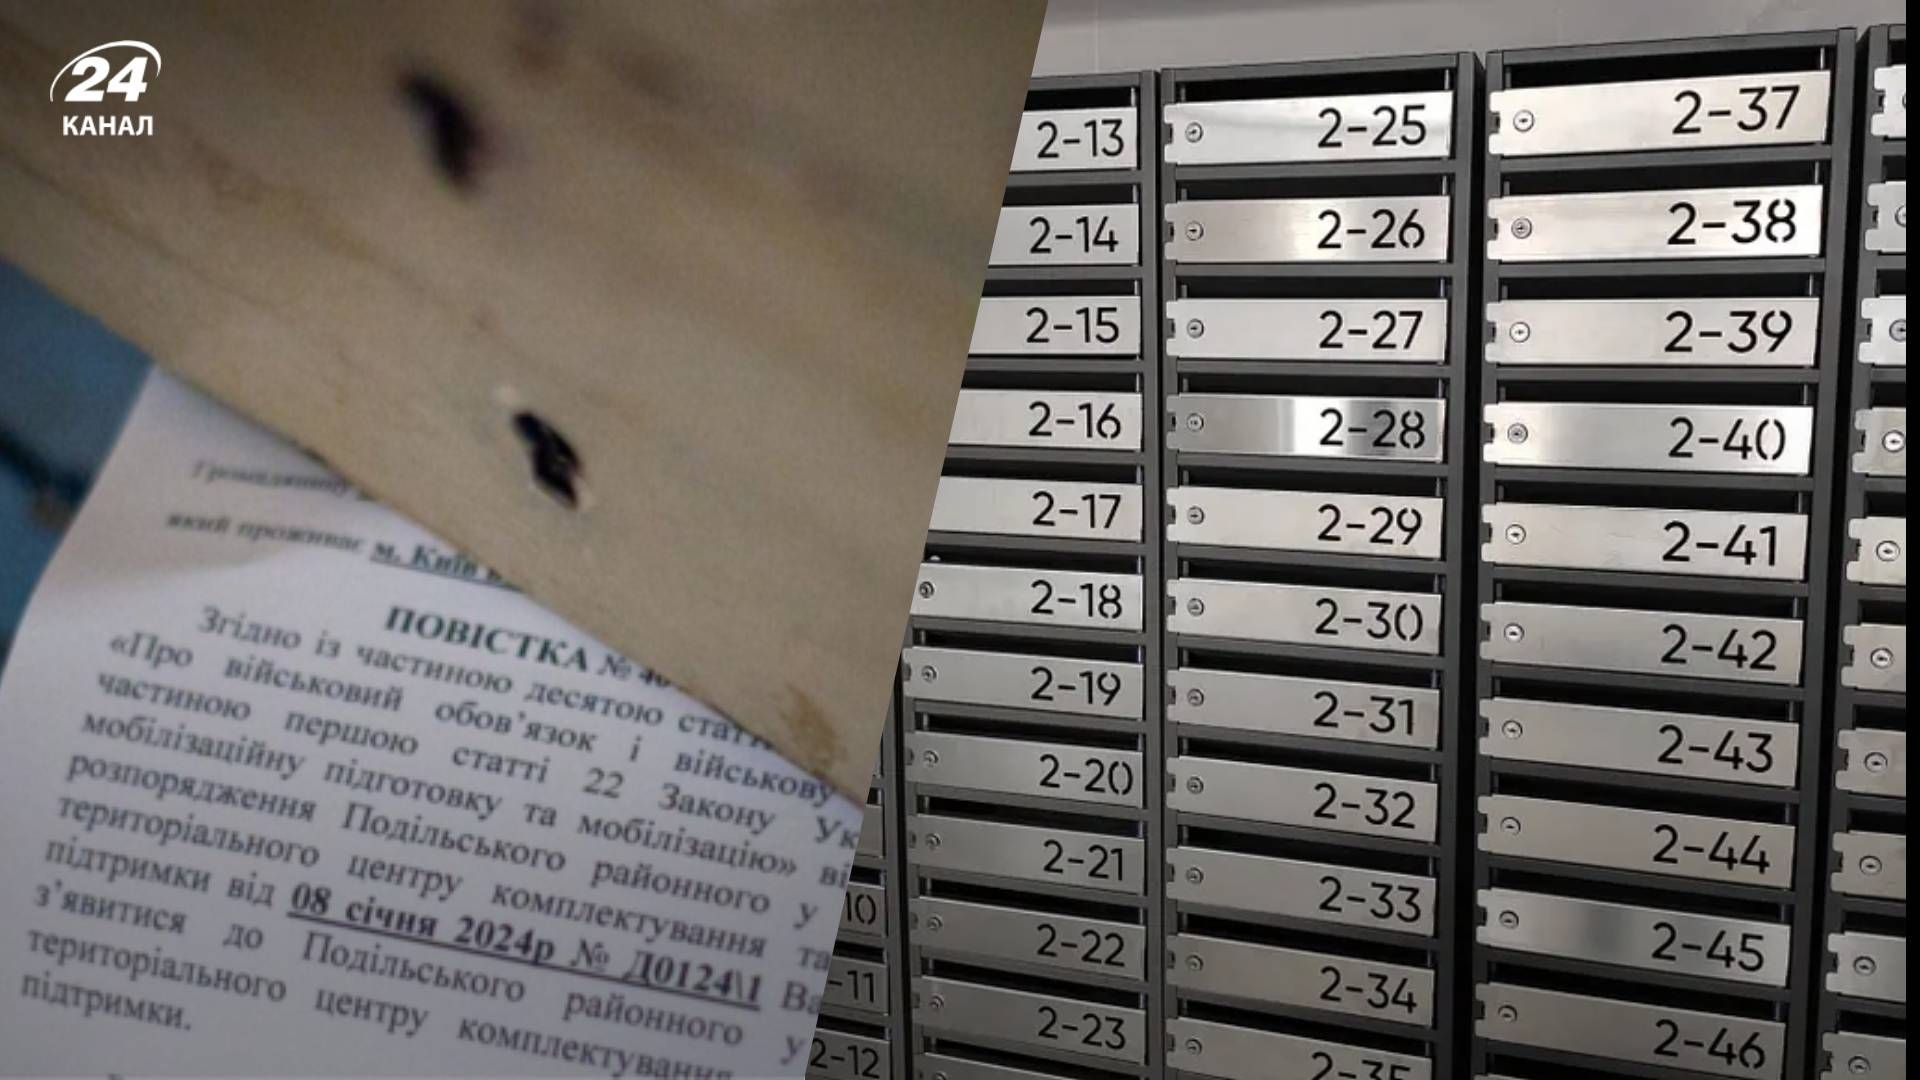 24
КАНАЛ
Громадянину
який проживає м. Київ в
ПОВІСТКА №
Згідно із частиною десятою статті
«Про військовий обов’язок і військову
частиною першою статті 22 Закону Ук
мобілізаційну підготовку та мобілізацію» ві
розпорядження Подільського районного у
територіального центру комплектування та
підтримки від 08 січня 2024р № Д0124\1 Ва
з’явитися до Подільського районного у
територіального центру комплектування
підтримки.
10
-11
2-12
2-13
2-14
2-15
2-16
2-17
2-18
2-19
2-20
2-21
2-22
2-23
2-25
2-26
2-27
2-28
2-29
2-30
2-31
2-32
2-33
2-34
2-35
2-37
2-38
2-39
2-40
2-41
2-42
2-43
2-44
2-45
2-46